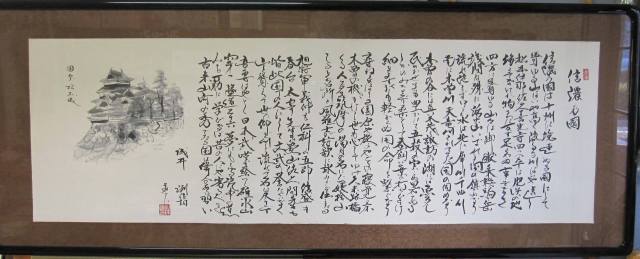 信濃の国
信濃の国は十州に境連ぬる国にして
聳ゆる山はいや高く流るる川はいや遠し
松本伊那佐久善光寺四つの平は肥沃の地
海こそなけれ物さわに万ず足らわぬ事ぞなき
四方に聳ゆる山々は御嶽乗鞍駒ヶ岳
浅間は殊に活火山いずれも国の鎮めなり
流れ淀まずゆく水は北に犀川千曲川
南に木曽川天竜川これまた国の固めなり
木曽の谷には真木茂り諏訪の湖には魚多し
民のかせぎも豊かにて五穀の実らぬ里やある
しかのみならず桑とりて蚕飼いの業の打ちひらけ
細きよすがも軽からぬ国の命を繋ぐなり
尋ねまほしき園原や旅のやどりの寝覚の床
木曽の桟かけし世も心してゆけ久米路橋
くる人多き筑摩の湯月の名にたつ姨捨山
しるき名所と風雅士が詩歌に詠てぞ伝えたる
旭将軍義仲も仁科の五郎信盛も
春台太宰先生も象山佐久間先生も
皆此国の人にして文武の誉たぐいなく
山と聳えて世に仰ぎ川と流れて名は尽ず
吾妻はやとし日本武嘆き給いし碓氷山
穿つ隧道二十六夢にもこゆる汽車の道
みち一筋に学びなば昔の人にや劣るべき
古来山河の秀でたる国は偉人のある習い
浅井 洌
国宝 松本城